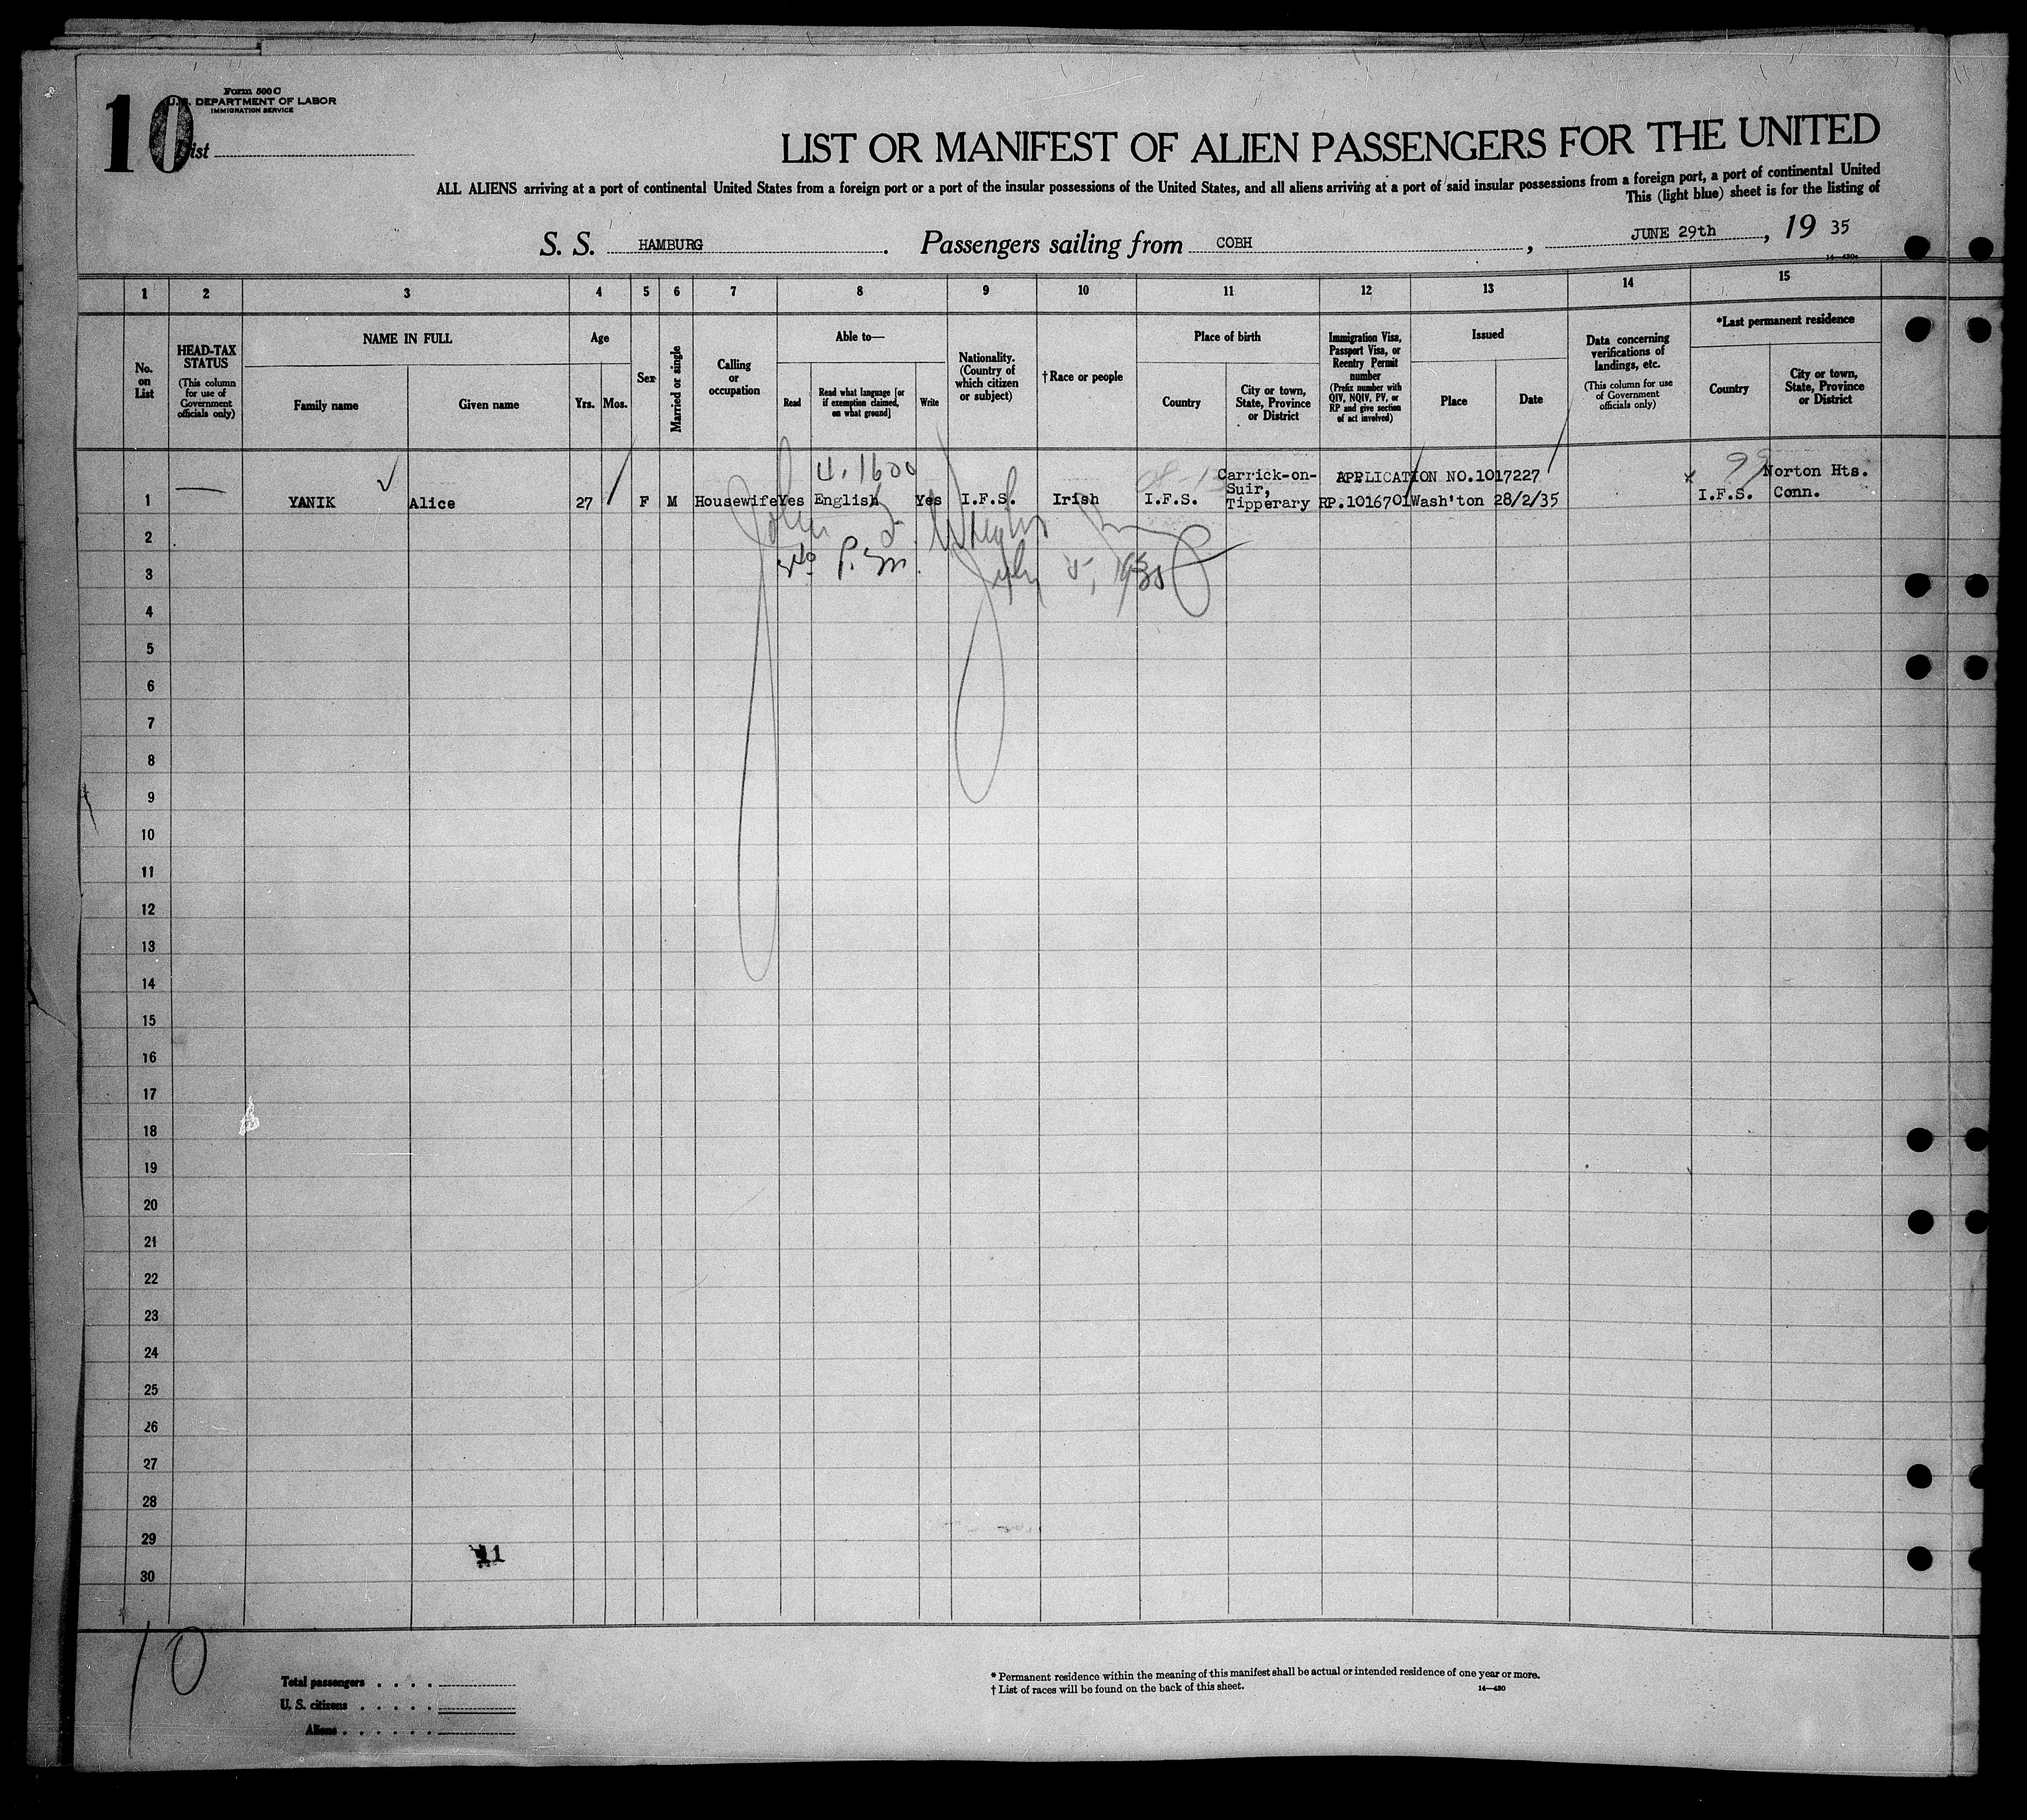 10
Form 500 C
U. S. DEPARTMENT OF LABOR
IMMIGRATION SERVICE
List
LIST OR MANIFEST OF ALIEN PASSENGERS FOR THE UNITED
ALL ALIENS arriving at a port of continental United States from a foreign port or a port of the insular possessions of the United States, and all aliens arriving at a port of said insular possessions from a foreign port, a port of continental United
This (light blue) sheet is for the listing of
S. S. HAMBURG . Passengers sailing from COBH , JUNE 29th , 19 35
1 2 3 4 5 6 7 8 9 10 11 12 13 14 15
No. on List
HEAD-TAX STATUS
(This column for use of Government officials only)
NAME IN FULL
Family name
Given name
Age
Yrs.
Mos.
Sex
Married or single
Calling or occupation
Able to—
Read
Read what language [or if exemption claimed, on what ground]
Write
Nationality. (Country of which citizen or subject)
† Race or people
Place of birth
Country
City or town, State, Province or District
Immigration Visa, Passport Visa, or Reentry Permit number
(Prefix number with QIV, NQIV, PV, or RP and give section of act involved)
Issued
Place
Date
Data concerning verifications of landings, etc.
(This column for use of Government officials only)
*Last permanent residence
Country
City or town, State, Province or District
4.1600
Carrick-on- APPLICATION NO.1017227 x 99 Norton Hts.
Suir,
1 YANIK Alice 27 F M Housewife Yes English Yes I.F.S. Irish I.F.S. Tipperary RP.1016701 Wash'ton 28/2/35 I.F.S. Conn.
2 John
3 P.M. July 5, 1935
4
5
6
7
8
9
10
11
12
13
14
15
16
17
18
19
20
21
22
23
24
25
26
27
28
29
11
30
10
Total passengers . . . .
U. S. citizens . . . . .
Aliens . . . . . .
* Permanent residence within the meaning of this manifest shall be actual or intended residence of one year or more.
† List of races will be found on the back of this sheet.
14—430